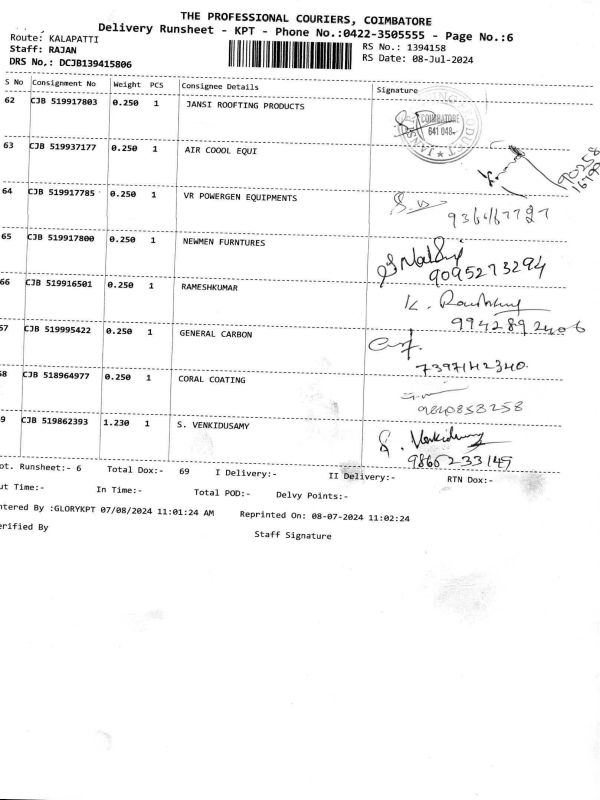 THE PROFESSIONAL COURIERS, COIMBATORE
Delivery Runsheet - KPT - Phone No.:0422-3505555 - Page No.:6
Route: KALAPATTI
RS No.: 1394158
Staff: RAJAN
RS Date: 08-Jul-2024
DRS No,: DCJB139415806
S No Consignment No Weight PCS Consignee Details Signature
62 CJB 519917803 0.250 1 JANSI ROOFTING PRODUCTS
COIMBATORE
641 048
63 CJB 519937177 0.250 1 AIR COOOL EQUI
90258
64 CJB 519917785 0.250 1 VR POWERGEN EQUIPMENTS
65 CJB 519917800 0.250 1 NEWMEN FURNTURES
9095273294
66 CJB 519916501 0.250 1 RAMESHKUMAR
K.
9942892406
67 CJB 519995422 0.250 1 GENERAL CARBON
7397142340.
68 CJB 518964977 0.250 1 CORAL COATING
9840853258
9 CJB 519862393 1.230 1 S. VENKIDUSAMY
S. Venkidusamy
9866233149
ot. Runsheet:- 6 Total Dox:- 69 I Delivery:- II Delivery:- RTN Dox:-
ut Time:- In Time:- Total POD:- Delvy Points:-
ntered By :GLORYKPT 07/08/2024 11:01:24 AM Reprinted On: 08-07-2024 11:02:24
erified By Staff Signature